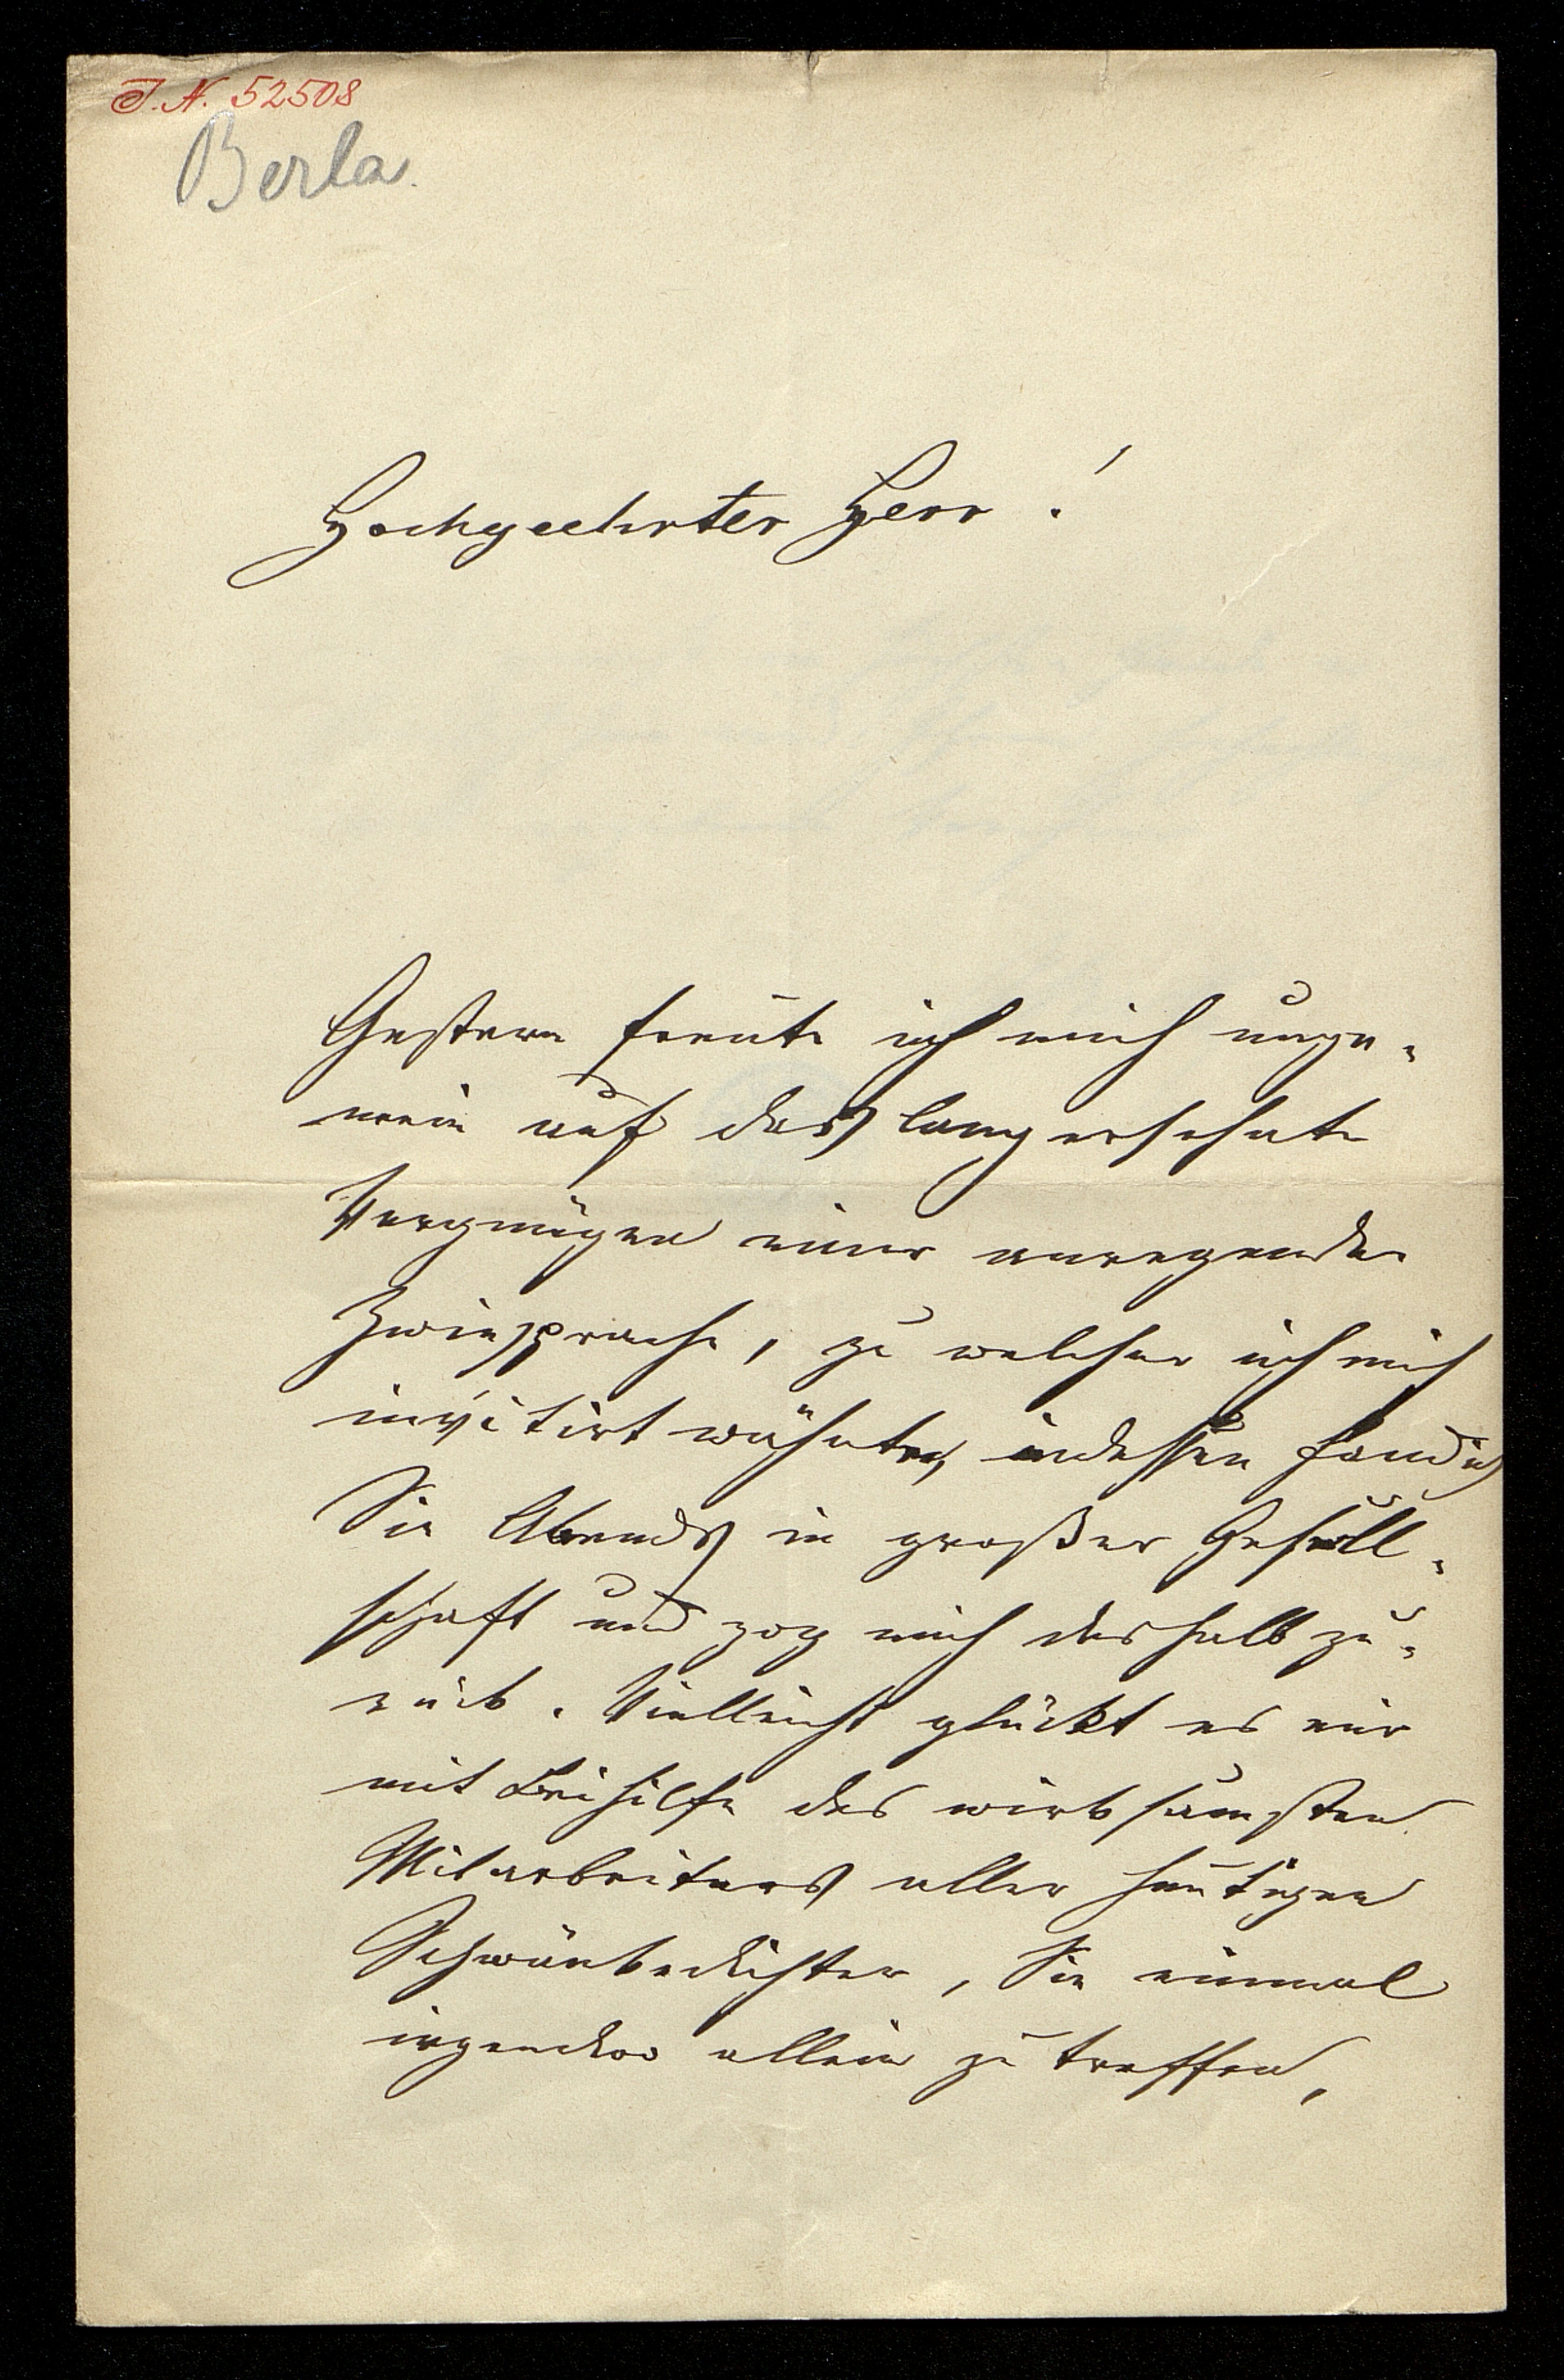 I.N. 52508
Berla.
Hochgeehrter Herr!
Gestern freute ich mich unge-
mein auf das langersehnte
Vergnügen einer anregenden
Zwiesprache, zu welcher ich mich
invitirt wähnte, indessen fand ich
Sie Abends in großer Gesell-
schaft und zog mich deshalb zu-
rück. Vielleicht glückt es mir
mit Beihilfe des wirksamsten
Mitarbeiters aller heutigen
Schwänkedichter, Sie einmal
irgendwo allein zu treffen,